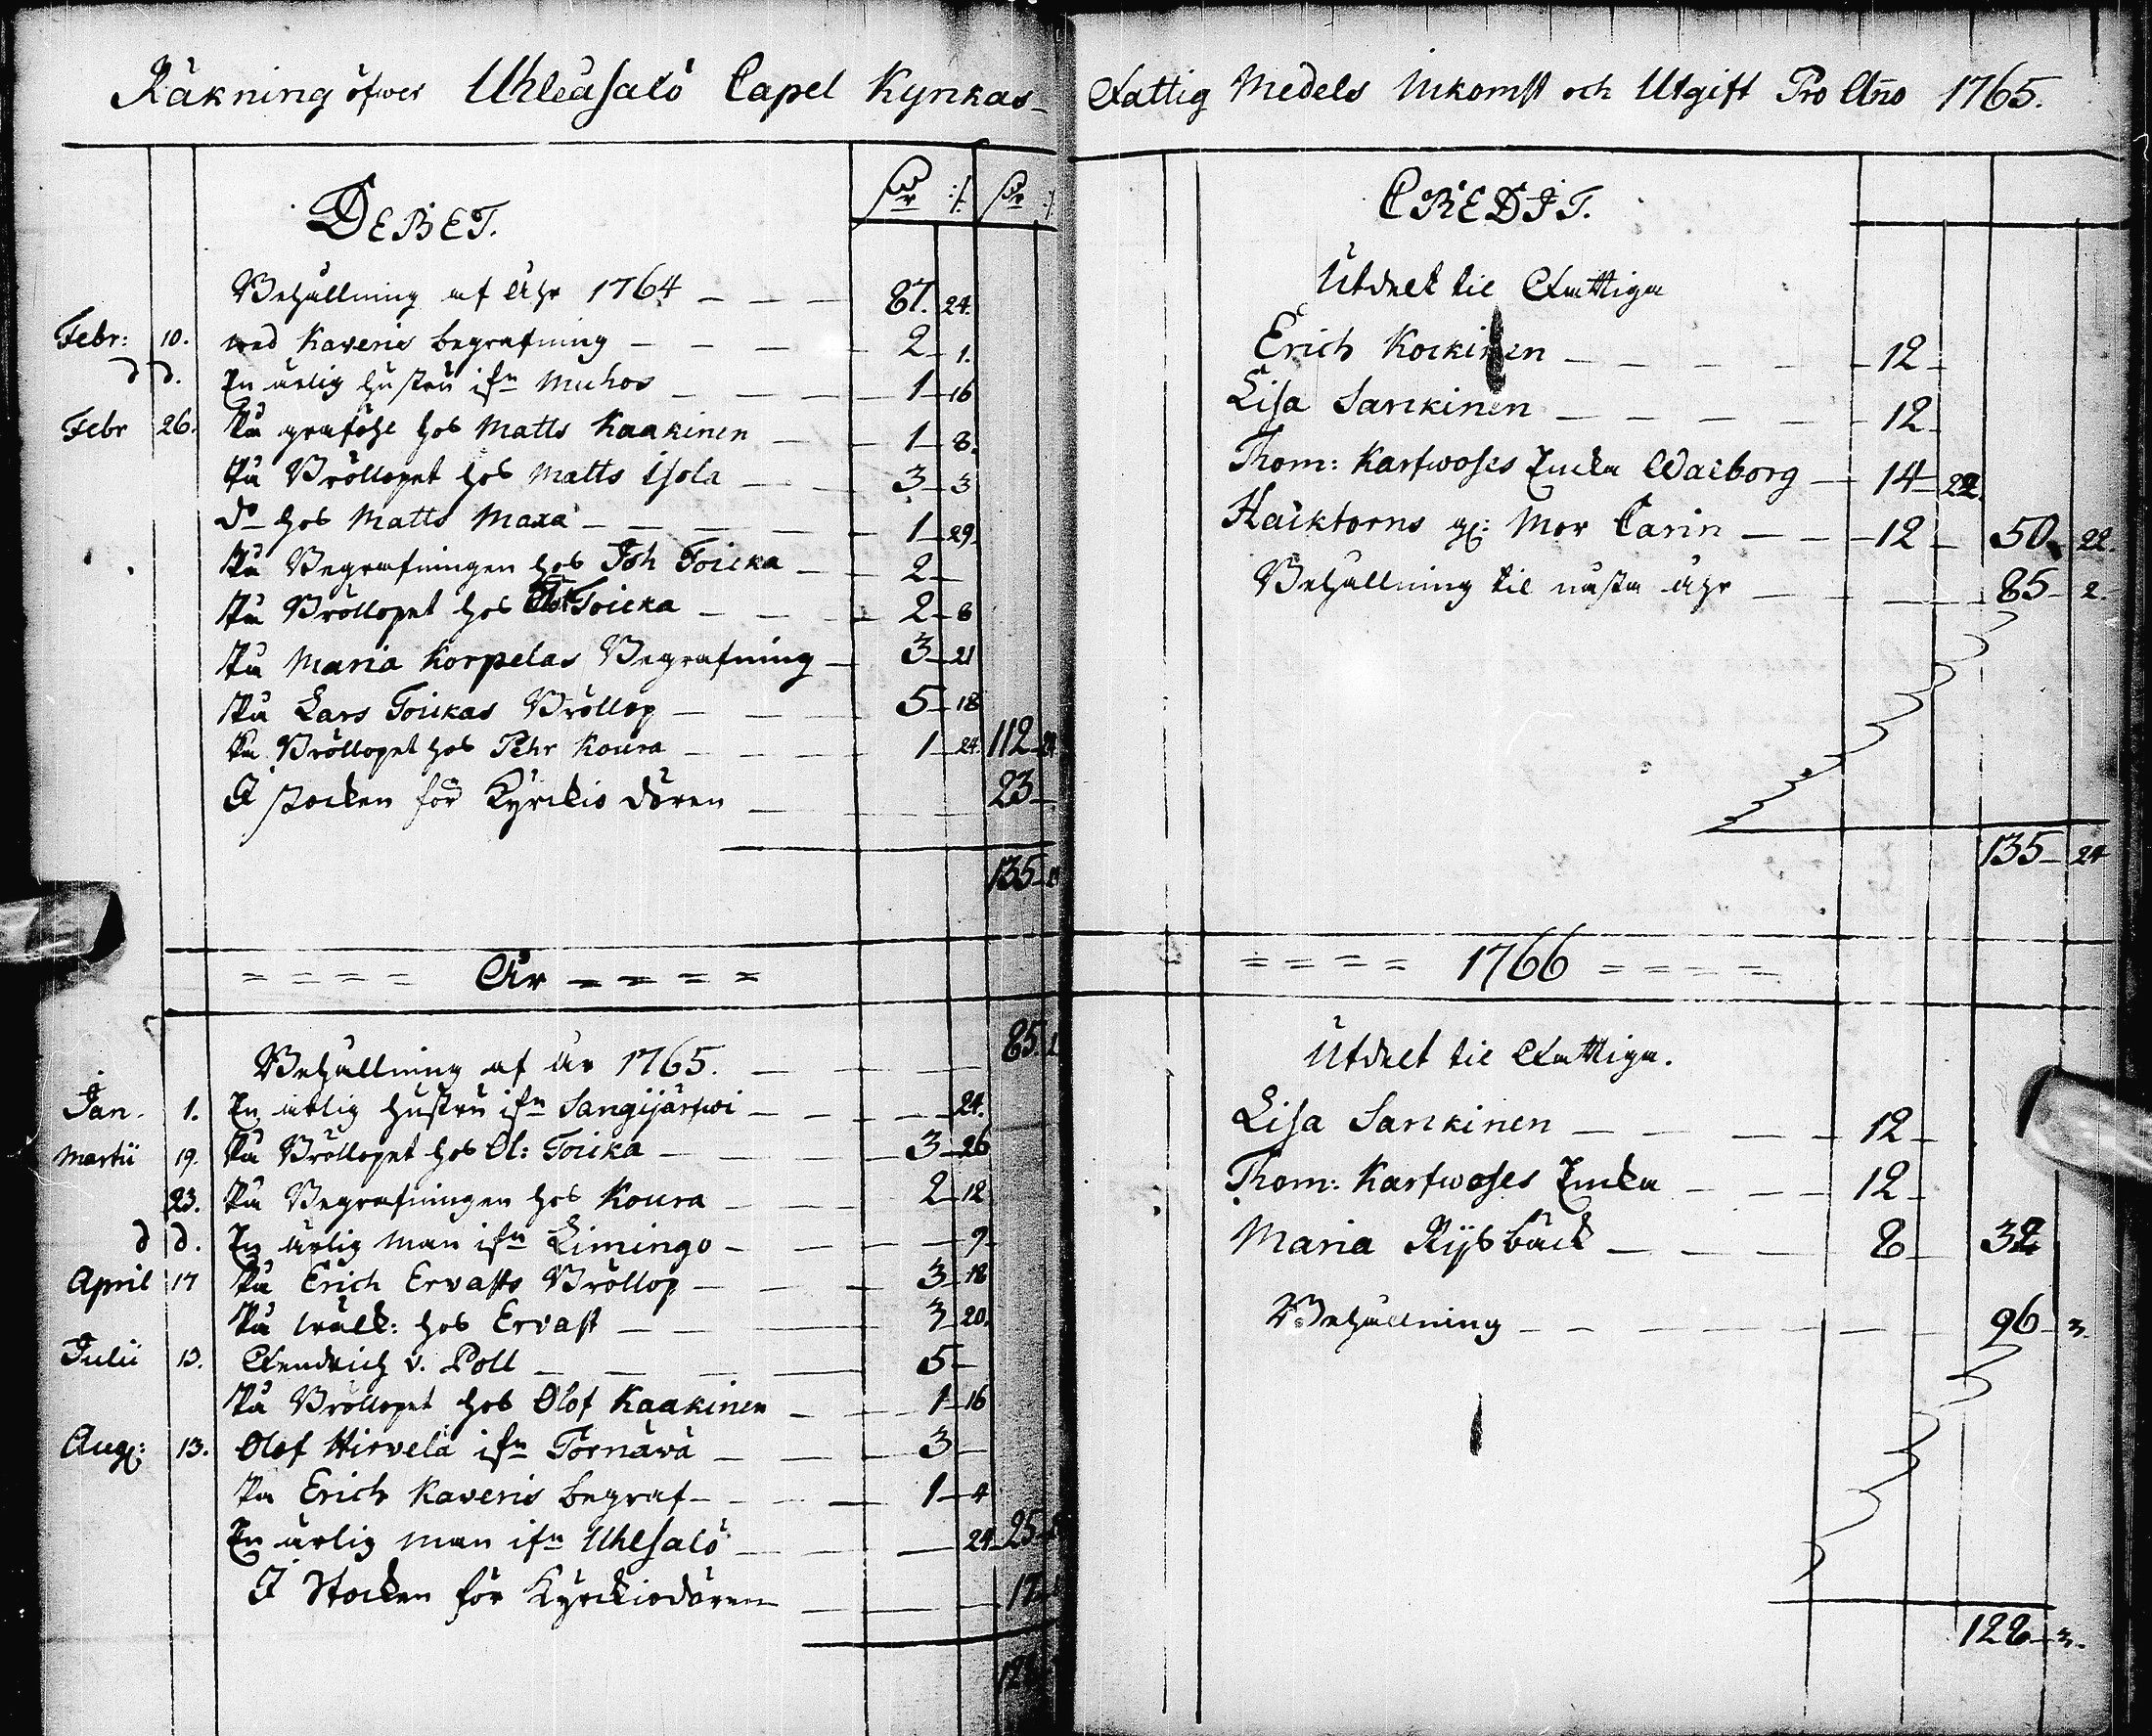 Räkning öfwer Uhleåsalo Capel Kyrkas Fattig Medels Inkomst och Utgift Pro Año 1765.
DEBET.
Behållning af Åhr 1764 87. 24.
Febr: 10. wed Kaveris begrafning 2 1.
d d. En ärlig hustru ifn Muhos 1 16
Febr 26. På graföhl hos Matts Kaakinen 1 8.
På Bröllopet hos Matts Isola 3 3
do hos Matts Maxa 1 29
På Begrafningen hos Joh Toicka 2
På Bröllopet hos Toicka 2 6
På Maria Korpelas Begrafning 3 21
På Lars Toickas Bröllop 5 18
På Bröllopet hos Pehr Koura 1 24. 112 24
I stocken för Kyrckio dören 23
135
År
Behållning af år 1765. 85.
Jan. 1. En ärlig hustru ifn Sangijärfwi 24.
Martii 19. På Bröllopet hos Ol: Toicka 3 26
23. På Begrafningen hos Koura 2 12
d d. En ärlig Man ifn Limingo 9
April 17 På Erich Ervasts Bröllop 3 18
På hos Ervast 3 20.
Julii 13. Fendrich v. Poll 5
På Bröllopet hos Olof Kaakinen 1 16
Aug: 13. Olof Hirvelä ifn Tornäwä 3
På Erich Kaveris begraf 1 4
En ärlig man ifn Uhlsalo 24 25
I Stocken för Kyrckiodören 17
CREDIT.
Utdelt til Fattiga
Erich Kockinen 12
Lisa Sarckinen 12
Thom: Karfwoses Encka Walborg 14 22.
Hacktorns g: Mor Carin 12 50 22.
Behållning til nästa åhr 85 2.
135 24
1766
Utdelt til Fattiga.
Lisa Sarckinen 12
Thom: Karfwoses Encka 12
Maria Rysbäck 8 32
Behållning 96 3.
128 3.